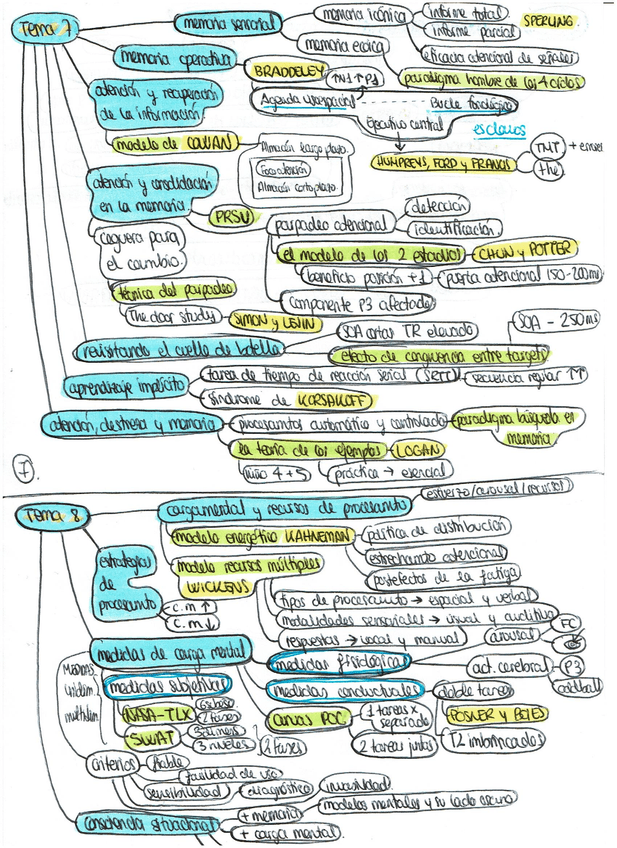 Tema 7
memoria sensorial
memoria icónica
informe total
informe parcial
SPERLING
eficacia atencional de señales
memoria ecoica
paradigma hombre de los 4 oídos
memoria operativa
BRADDELEY
Agenda visoespacial
Bucle fonológico
Ejecutivo central
esclavos
HUMPREYS, FORD y FRANCIS
TNT
+ errores
the
atención y recuperación
de la información
modelo de COWAN
Almacén largo plazo
Foco atención
Almacén corto plazo
atención y consolidación
en la memoria
PRSV
parpadeo atencional
detección
identificación
el modelo de los 2 estadios
CHUN y POTTER
beneficio posición +1
puerta atencional 150-200ms
componente P3 afectado
ceguera para
el cambio
técnica del parpadeo
The door study
SIMON y LEVIN
revisitando el cuello de botella
SOA cortas TR elevado
efecto de congruencia entre targets
SOA - 250ms
aprendizaje implícito
tarea de tiempo de reacción serial (SRTT)
secuencia regular ↑↑
síndrome de KORSAKOFF
atención, destreza y memoria
procesamto automático y controlado
paradigma búsqueda en
memoria
la teoría de los ejemplos
LOGAN
niño 4 + 5
práctica → esencial
7.
Tema 8
carga mental y recursos de procesamto
esfuerzo/arousal/recursos
modelo energético KAHNEMAN
política de distribución
estrechamto atencional
postefectos de la fatiga
modelo recursos múltiples
WICKENS
tipos de procesamto → espacial y verbal
modalidades sensoriales → visual y auditiva
respuestas → vocal y manual
estrategias
de
procesamto
c.m ↑
c.m ↓
medidas de carga mental
medidas fisiológicas
arousal
FC
act. cerebral
P3
oddball
MEDIDAS
unidim.
multidim.
medidas subjetivas
NASA-TLX
6 subesc
2 fases
SWAT
3 dimens
3 niveles
2 fases
medidas conductuales
doble tarea
POSNER y BOIES
T2 imbricadas
curvas POC
1 tareas x
separado
2 tareas juntas
criterios
fiable
facilidad de uso
sensibilidad
diagnóstico
invasividad
consciencia situacional
+ memoria
modelos mentales y su lado oscuro
+ carga mental